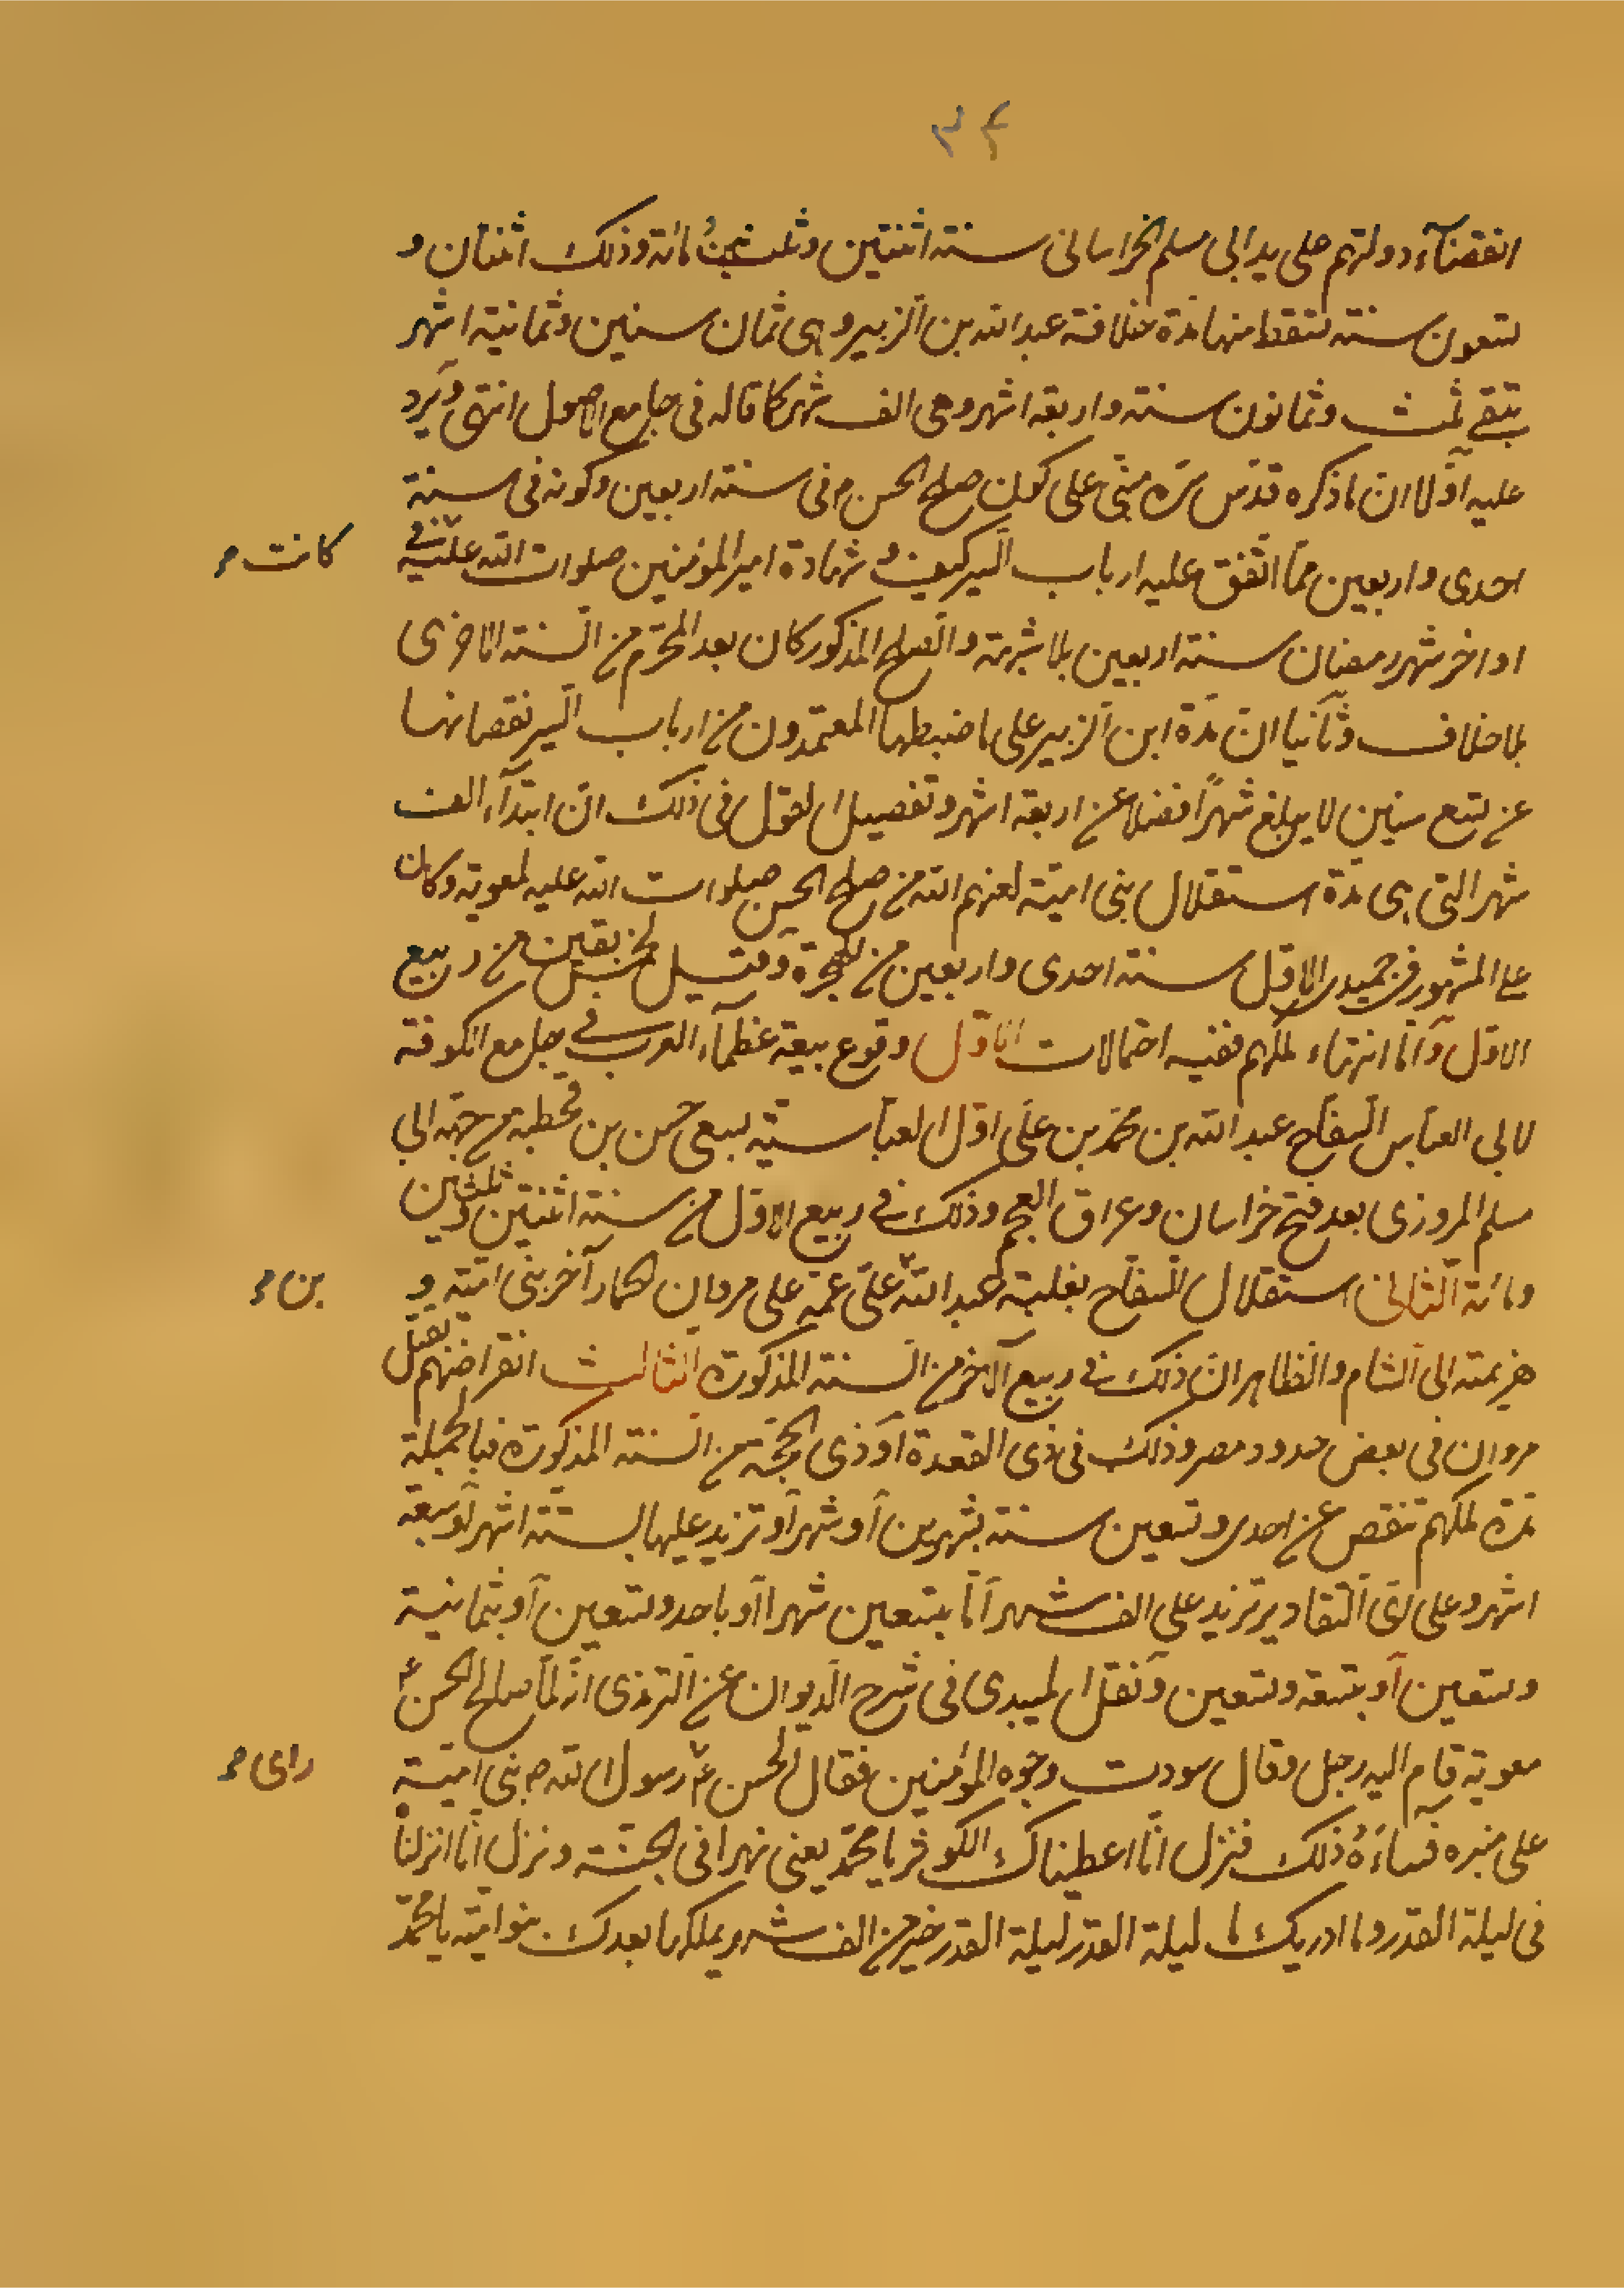 ٣٤
انقضآء دولتهم على يد ابى مسلم الخراسانى سنة اثنتين وثلثين ومائة وذلك اثنتان و
تسعون سنة تسقط منها مدّة خلافة عبد الله بن الزبير وهى ثمان سنين وثمانية اشهر
يبقى ثلث وثمانون سنة واربعة اشهر وهى الف شهر كذا قاله فى جامع الاصول انتهى ويرد
عليه اوّلا انّ ما ذكره قدّس سرّه مبنىّ على كون صلح الحسن ع فى سنة اربعين وكونه فى سنة
احدى واربعين ممّا اتّفق عليه ارباب السير كيف و شهادة امير المؤمنين صلوات الله عليه فى
كانت م
اواخر شهر رمضان سنة اربعين بلا شبهة والصلح المذكور كان بعد المحرّم من السّنة الاخرى
بلا خلاف وثانيا انّ مدّة ابن الزبير على ما ضبطها المعتمدون من ارباب السّير نقصانها
عن تسع سنين لا يبلغ شهرًا فضلا عن اربعة اشهر وتفصيل القول فى ذلك انّ ابتدآء الف
شهر التى هى مدّة استقلال بنى اميّة لعنهم الله من صلح الحسن صلوات الله عليه لمعوية وكان
على المشهور فى جميدى الاوّل سنة احدى واربعين من الهجرة وقيل لخمس بقين من ربيع
الاوّل وامّا انتهاء ملكهم ففيه احتمالات الاوّل وقوع بيعة عظمآء العرب فى جامع الكوفة
لابى العبّاس السّفاح عبد الله بن محمّد بن على اوّل العبّاسيّة بسعى حسن بن قحطبة من جهة ابى
مسلم المروزى بعد فتح خراسان وعراق العجم وذلك فى ربيع الاوّل من سنة اثنتين وثلثين
ومائة الثّانى استقلال السّفاح بغلبة عبد الله علىّ عمّه على مروان الحمار آخر بنى اميّة و
بن م
هزيمته الى الشام والظاهر انّ ذلك فى ربيع الآخر من السنة المذكورة الثالث انقراضهم بقتل
مروان فى بعض حدود مصر وذلك فى ذى القعدة او ذى الحجّة من السّنة المذكورة فبالجملة
مدّة ملكهم تنقص عن احدى وتسعين سنة بشهرين او شهر او تزيد عليها بستة اشهر او سبعة
اشهر وعلى اىّ التقادير تزيد على الف شهر امّا بتسعين شهرا او باحد وتسعين او بثمانية
وتسعين او بتسعة وتسعين ونقل الميبدى فى شرح الدّيوان عن الترمذى انّه لمّا صالح الحسن ع
معوية قام اليه رجل وقال سودت وجوه المؤمنين فقال الحسن ع رسول الله ص بنى اميّة
راى م
على منبره فساءَهُ ذلك فنزل انّا اعطيناك الكوثر يا محمّد يعنى نهرا فى الجنّة ونزل انّا انزلناه
فى ليلة القدر وما ادريك ما ليلة القدر ليلة القدر خير من الف شهر يملكها بعدك بنو اميّة يا محمّد